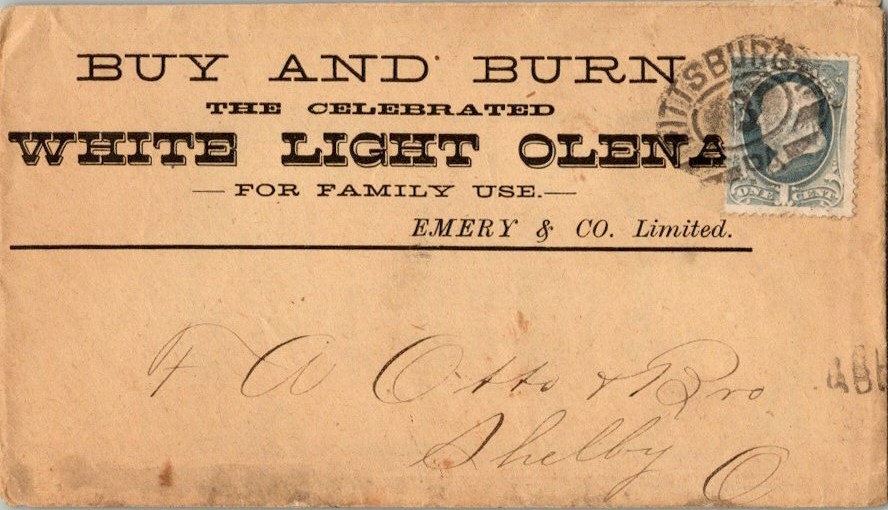 BUY AND BURN
THE CELEBRATED
WHITE LIGHT OLENA
—FOR FAMILY USE.—
EMERY & CO. Limited.
PITTSBURG
ONE 1 CENT
F A Otto & Bro
Shelby O